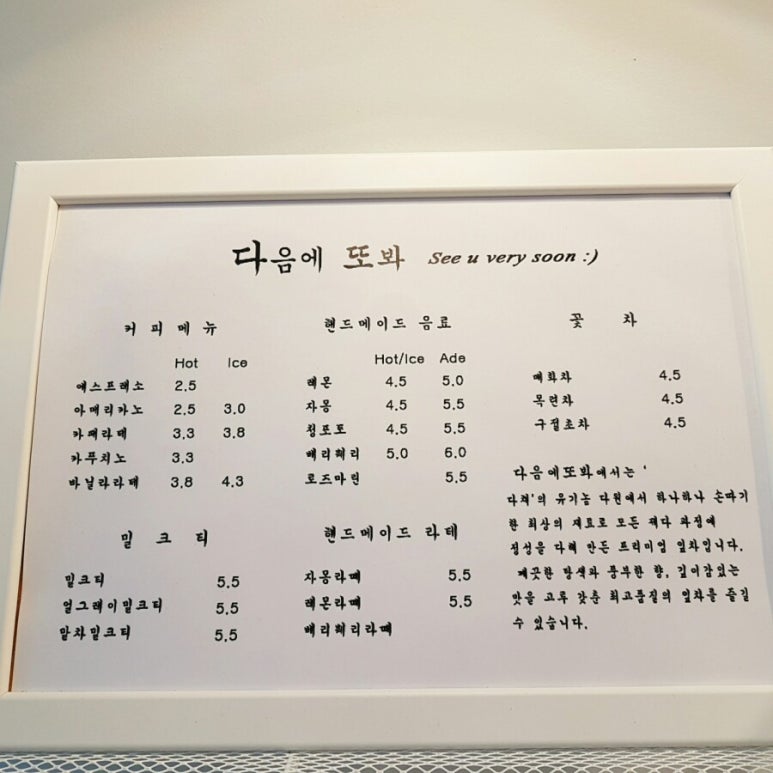 다음에 또봐 See u very soon :)
커피메뉴
Hot Ice
에스프레소 2.5
아메리카노 2.5 3.0
카페라떼 3.3 3.8
카푸치노 3.3
바닐라라떼 3.8 4.3
밀크티
밀크티 5.5
얼그레이밀크티 5.5
말차밀크티 5.5
핸드메이드 음료
Hot/Ice Ade
레몬 4.5 5.0
자몽 4.5 5.5
청포도 4.5 5.5
베리베리 5.0 6.0
로즈마린 5.5
핸드메이드 라떼
자몽라떼 5.5
레몬라떼 5.5
베리베리라떼
꽃 차
매화차 4.5
목련차 4.5
구절초차 4.5
다음에또봐에서는 '
다채'의 유기농 다원에서 하나하나 손따기
한 최상의 재료로 모든 제다 과정에
정성을 다해 만든 프리미엄 잎차입니다.
깨끗한 탕색과 풍부한 향, 깊이감있는
맛을 고루 갖춘 최고품질의 잎차를 즐길
수 있습니다.